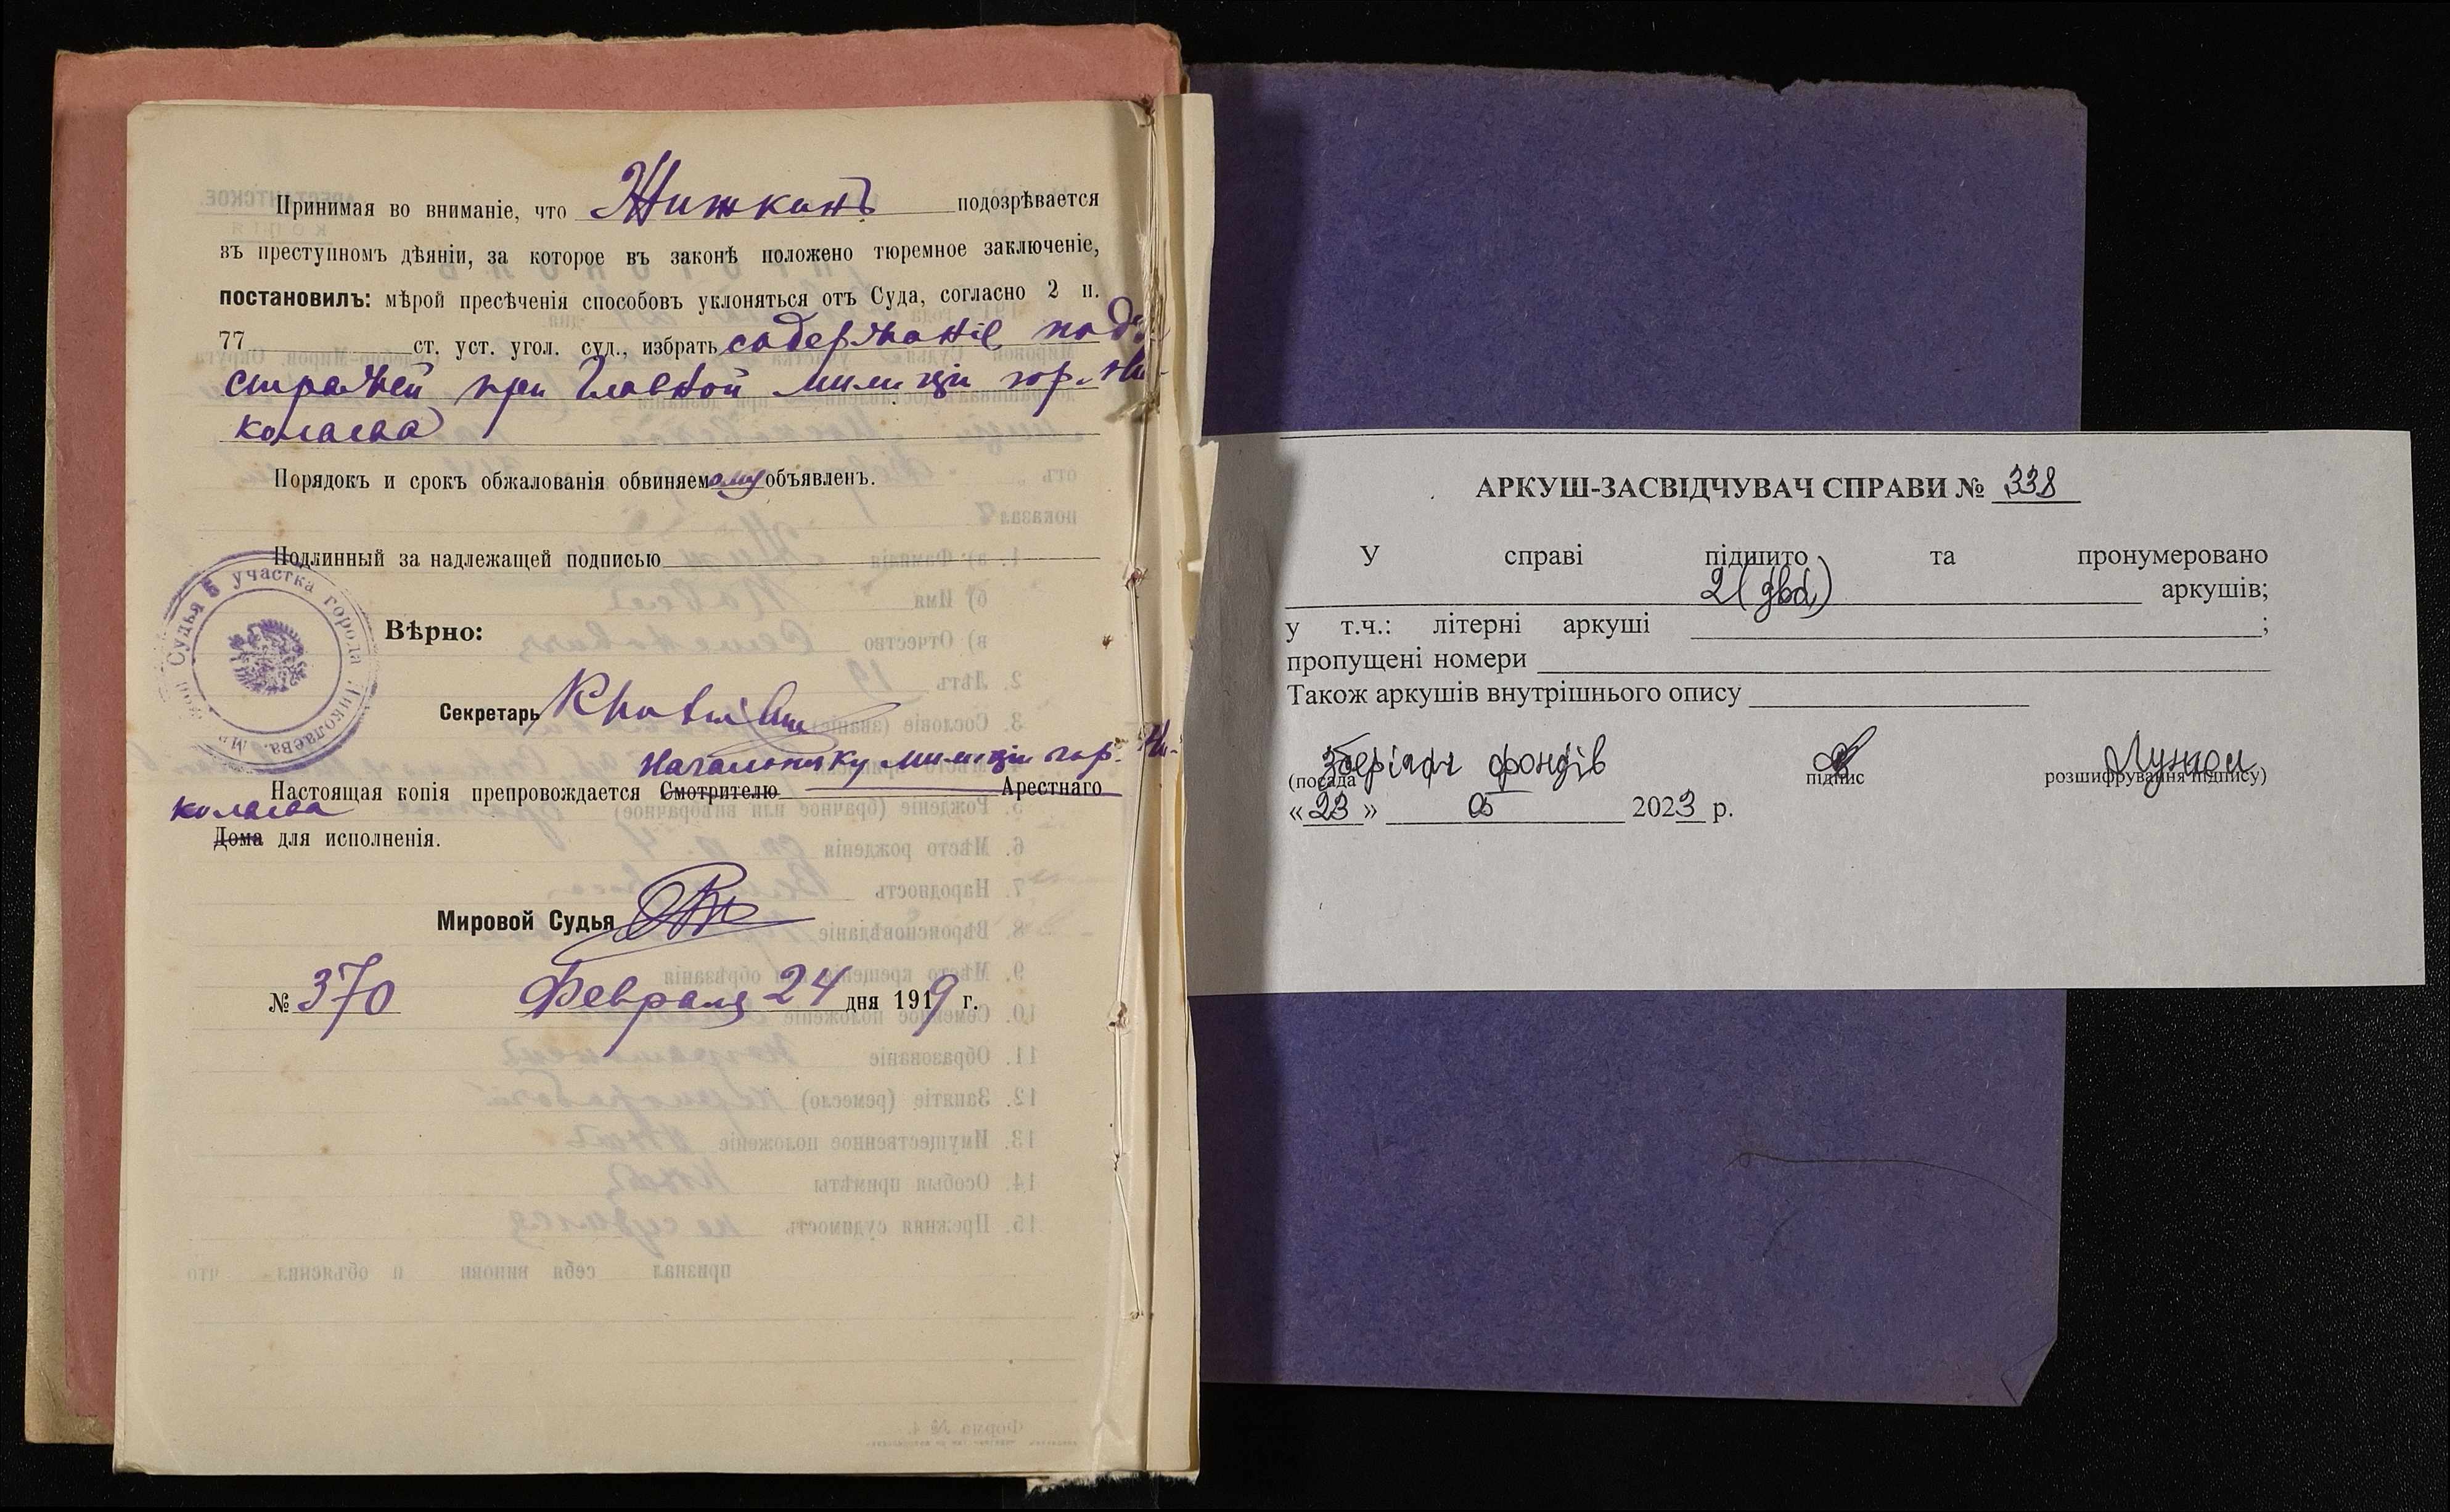 Принимая во вниманіе, что Жижкинъ подозрѣвается
въ преступномъ дѣяніи, за которое въ законѣ положено тюремное заключеніе,
постановилъ: мѣрой пресѣченія способовъ уклоняться отъ Суда, согласно 2 п.
77 ст. уст. угол. суд., избрать содержаніе подъ
стражей при Главной милиціи гор. Ни-
колаева
Порядокъ и срокъ обжалованія обвиняемому объявленъ.
Подлинный за надлежащей подписью
Судья 5 участка города Николаева
Вѣрно:
Секретарь
Начальнику милиціи гор. Ни-
Настоящая копія препровождается Смотрителю Арестнаго
колаева
Дома для исполненія.
Мировой Судья
№ 370 Февраля 24 дня 1919 г.
АРКУШ-ЗАСВІДЧУВАЧ СПРАВИ № 338
У справі підшито та пронумеровано
2 (два) аркушів;
у т.ч.: літерні аркуші ;
пропущені номери
Також аркушів внутрішнього опису
Зберігач фондів
(посада підпис розшифрування підпису)
«23» 05 2023 р.